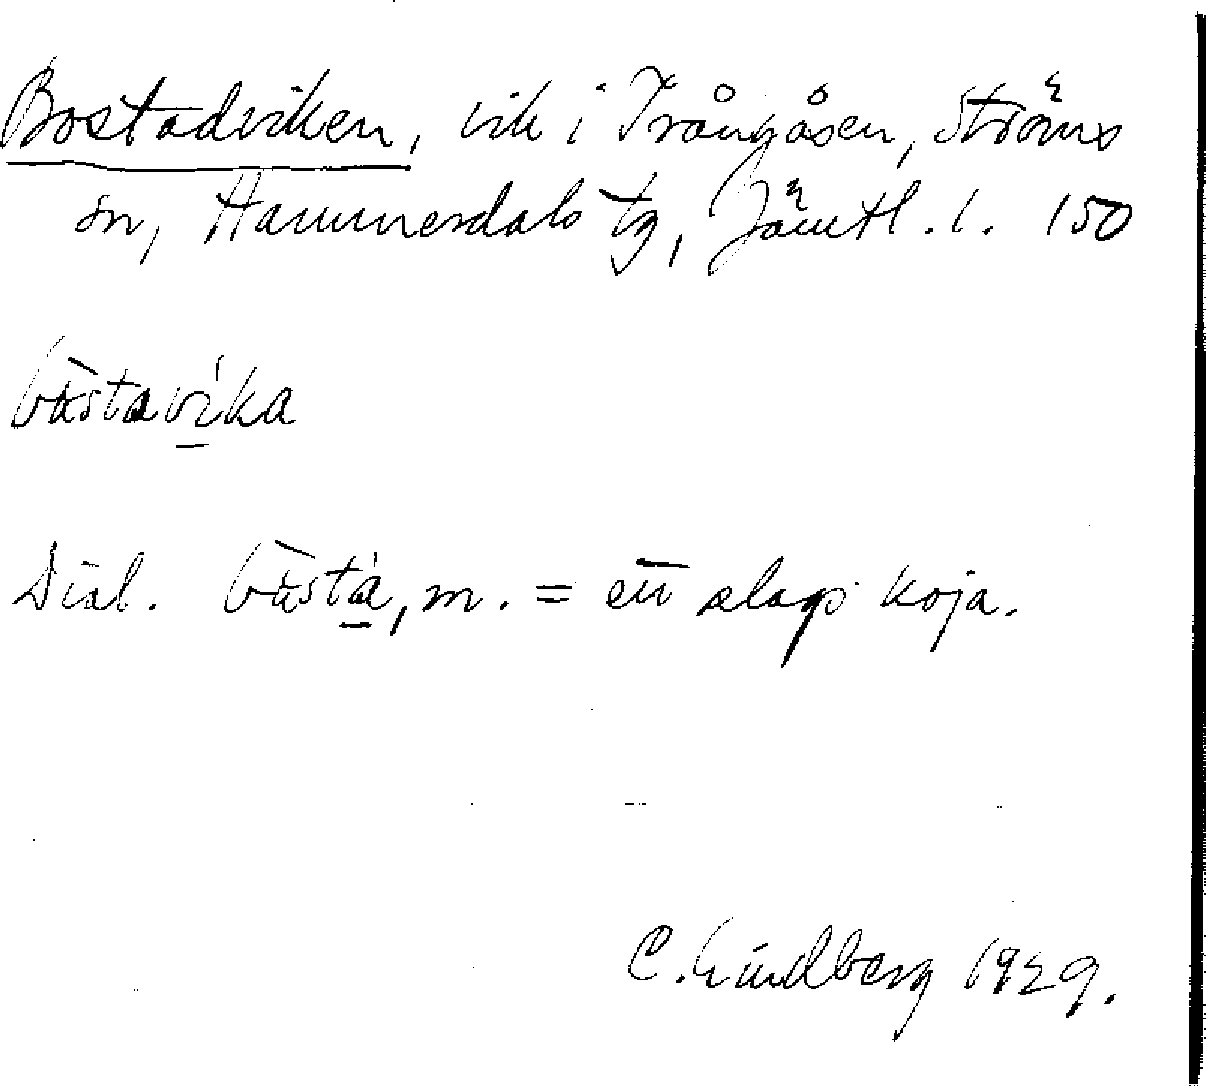 Bostadviken, vik i Trångåsen, Ströms
sn, Hammerdals tg, Jämtl. l. 150
bùstavíka
Dial. bùstá, m. = ett slags koja.
C. Lindberg 1929.